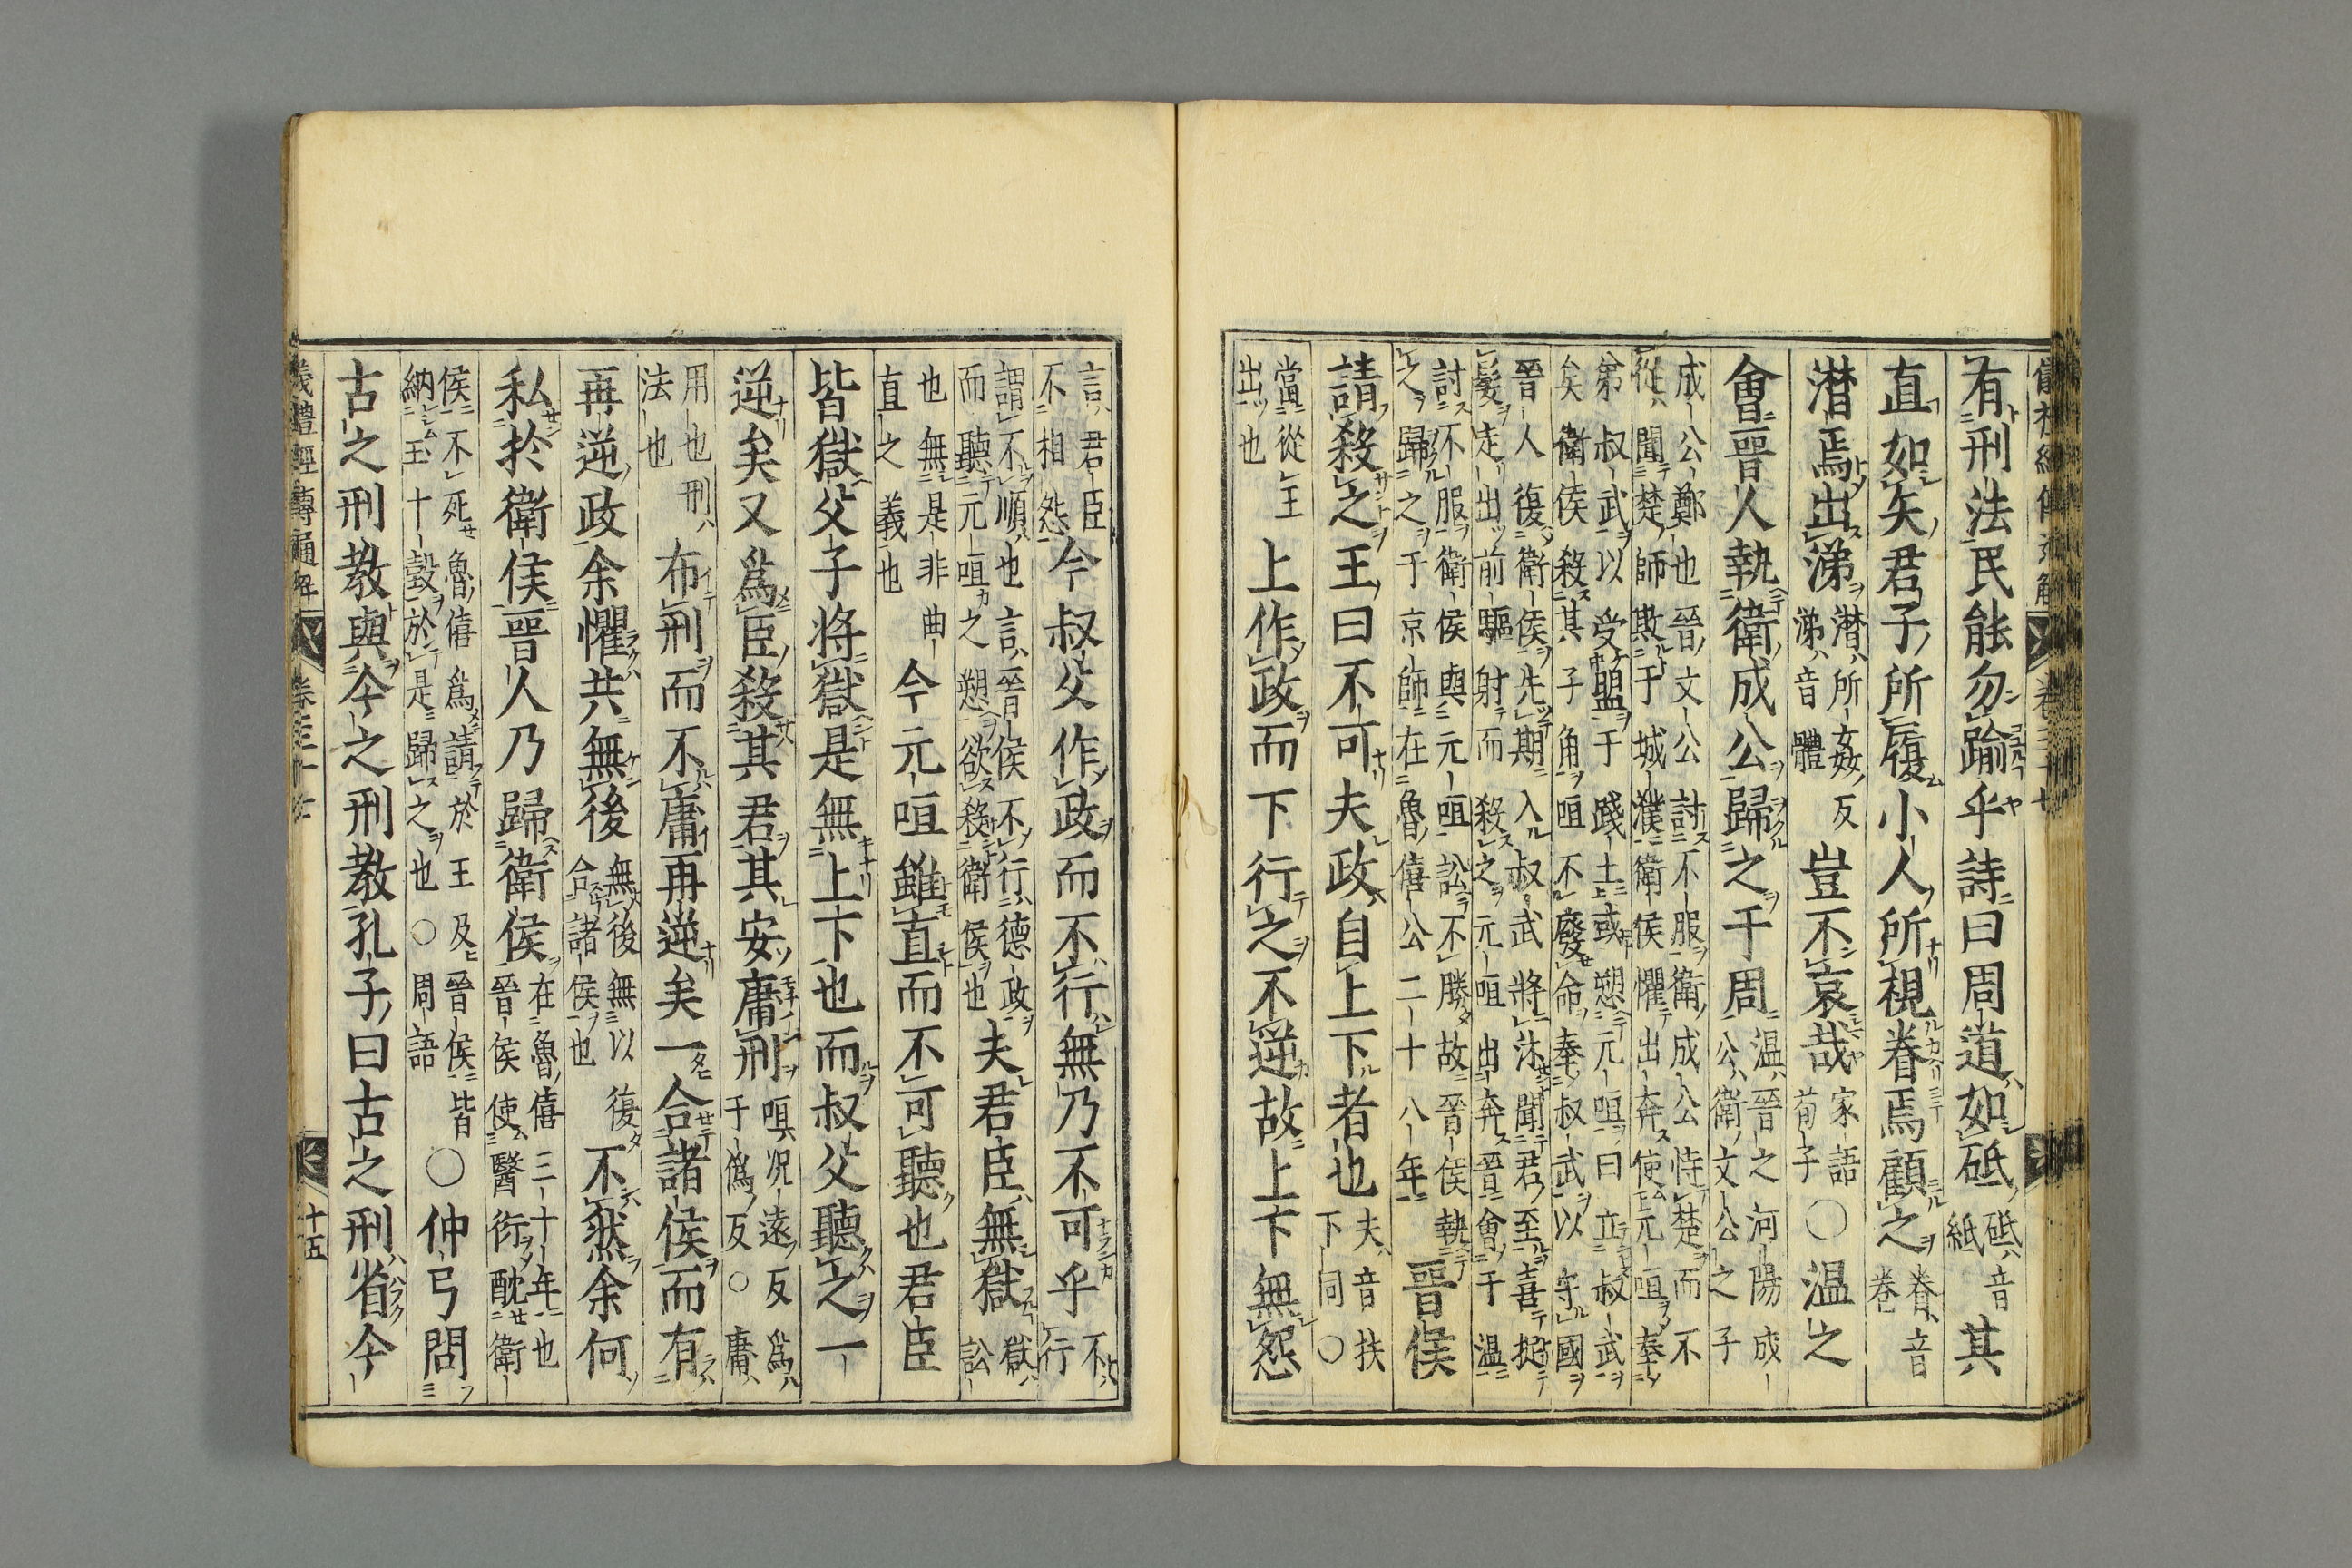 有刑法民能勿踰乎詩曰周道如砥砥音紙其
直如矢君子所履小人所視眷焉顧之眷音卷
潸焉出涕潸所姦反涕音體豈不哀哉家語荀子〇温之
會晋人執衛成公歸之于周温晉之河陽成公衛文公之子
成公鄭也晉文公討不服衛成公恃楚而不
從聞楚師敗于城濮衛侯懼出奔使元咺奉
弟叔武以受盟于踐土或愬元咺曰立叔武
矣衛侯殺其子角咺不廢命奉叔武以守國
晉人復衛侯先期入叔武將沐聞君至喜捉
髮走出前驅射而殺之元咺出奔晉會于温
討不服衛侯與元咺訟不勝故晉侯執
之歸之于京師在魯僖公二十八年晋侯
請殺之王曰不可夫政自上下者也夫音扶下同〇
當從王出也上作政而下行之不逆故上下無怨
言君臣不相怨今叔父作政而不行無乃不可乎不行
謂不順也言晉侯不行德政
而聽元咺之愬欲殺衛侯也夫君臣無獄獄訟
也無是非曲直之義也今元咺雖直而不可聽也君臣
皆獄父子將獄是無上下也而叔父聽之一
逆矣又爲臣殺其君其安庸刑咺况遠反爲于僞反〇庸
用也刑法也布刑而不庸再逆矣一合諸侯而有
再逆政余懼其無後無後無以復合諸侯也不然余何
私於衛侯晋人乃歸衛侯在魯僖三十年也晉侯使醫衍酖衛
侯不死魯僖爲請於王及晉侯皆
納玉十瑴於是歸之也〇周語〇仲弓問
古之刑教與今之刑教孔子曰古之刑省今
儀禮經傳通解 卷三十七 十五